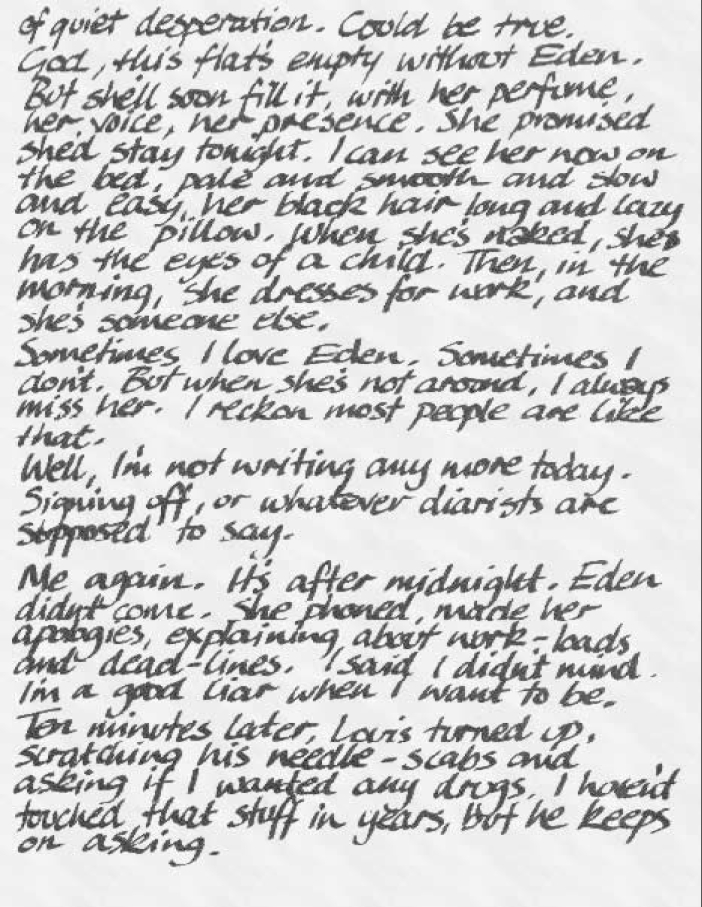 of quiet desperation. Could be true.
God, this flat's empty without Eden.
But she'll soon fill it, with her perfume,
her voice, her presence. She promised
she'd stay tonight. I can see her now on
the bed, pale and smooth and slow
and easy, her black hair long and lazy
on the pillow. When she's naked, she
has the eyes of a child. Then, in the
morning, she dresses for work, and
she's someone else.
Sometimes I love Eden. Sometimes I
don't. But when she's not around, I always
miss her. I reckon most people are like
that.
Well, I'm not writing any more today.
Signing off, or whatever diarists are
supposed to say.
Me again. It's after midnight. Eden
didn't come. She phoned, made her
apologies, explaining about work-loads
and dead-lines. I said I didn't mind.
I'm a good liar when I want to be.
Ten minutes later, Louis turned up,
scratching his needle-scabs and
asking if I wanted any drugs. I haven't
touched that stuff in years, but he keeps
on asking.